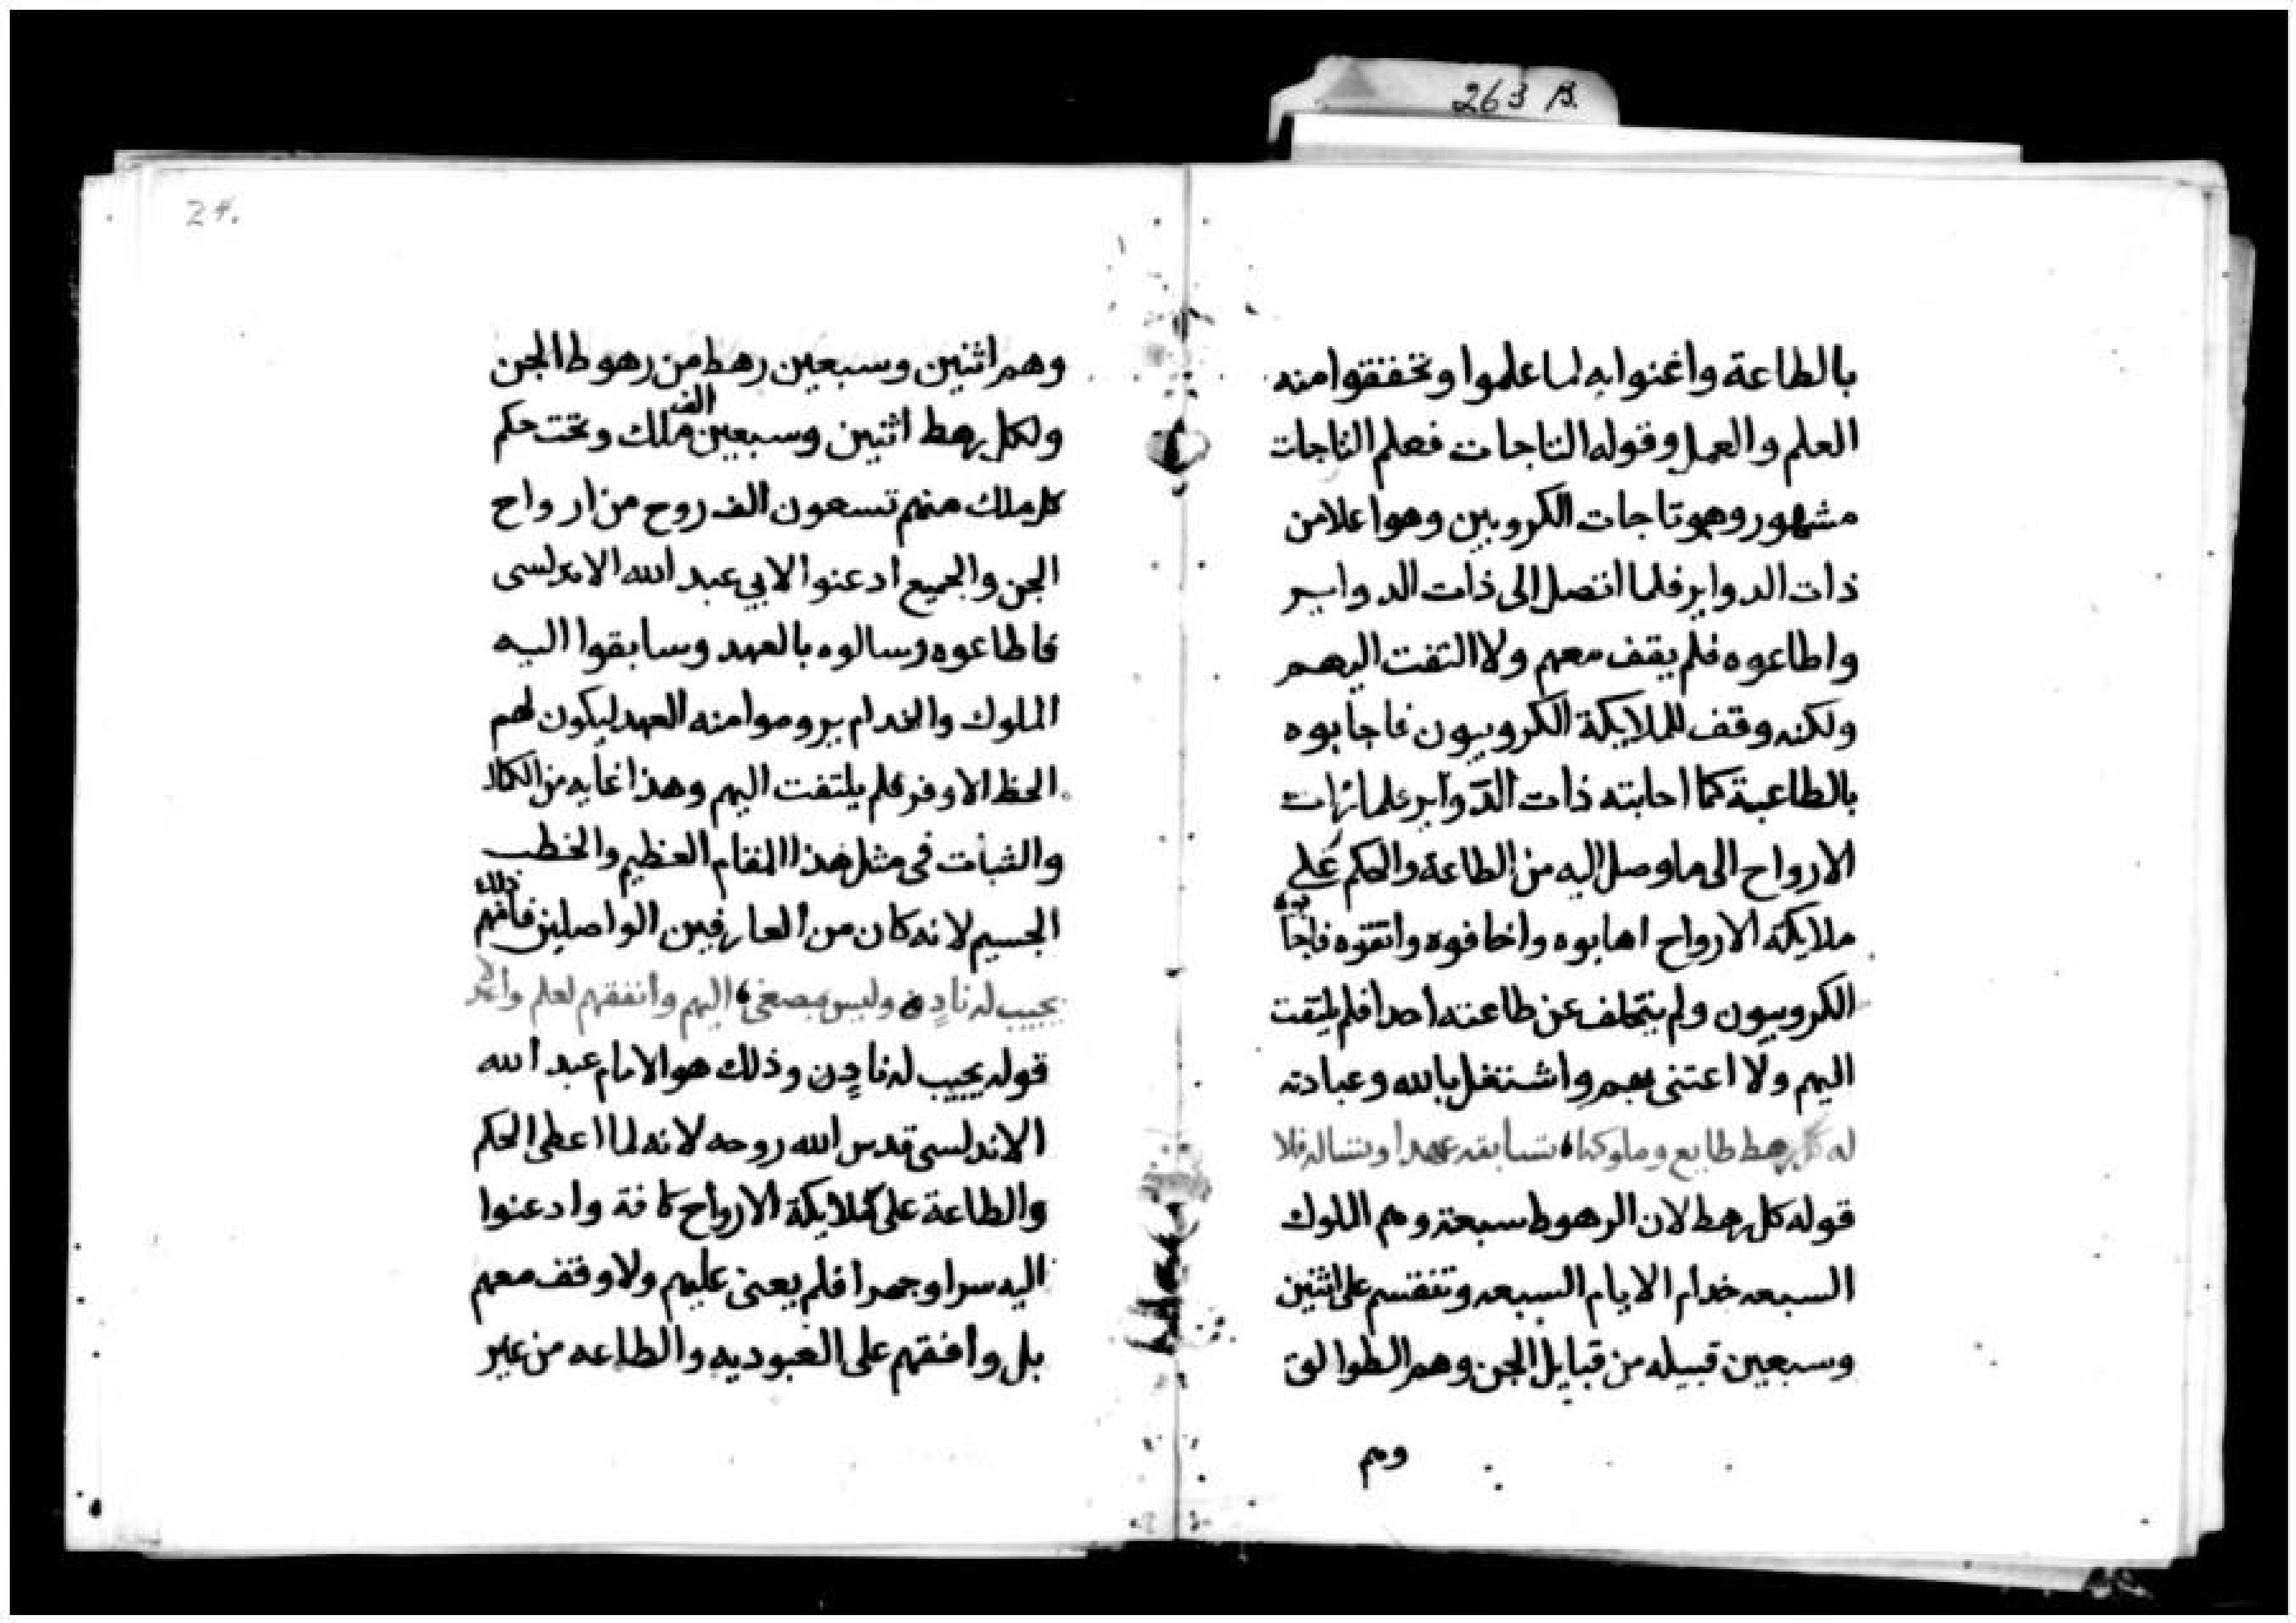 263 B.
بالطاعة واغنوا به لما علموا وتحققوا منه
العلم والعمل وقوله التاجات فعلم التاجات
مشهور وهو تاجات الكروبين وهو اعلا من
ذات الدواير فلما اتصل الى ذات الدواير
واطاعوه فلم يقف معهم ولا التفت اليهم
ولكنه وقف للملايكة الكروبيون فاجابوه
بالطاعبة كما اجابته ذات الدّواير علما رات
الارواح الى ما وصل اليه من الطاعة والحكم على
ملايكة الارواح اهابوه واخافوه واتقوه فاجابوه
الكروبيون ولم يتخلف عن طاعته احدا فلم يلتفت
اليهم ولا اعتنى بهم واشتغل بالله وعبادته
له كل رهط طايع وملوكها تسابقه عهدا وتساله فلا
قوله كل رهط لان الرهوط سبعة وهم الملوك
السبعه خدام الايام السبعه وتنقسم على اثنين
وسبعين قبيله من قبايل الجن وهم الطوالق
وهم
24.
وهم اثنين وسبعين رهط من رهوط الجن
ولكل رهط اثنين وسبعين الف ملك وتحت حكم
كل ملك منهم تسعون الف روح من ارواح
الجن والجميع ادعنوا لابي عبد الله الاندلسى
فاطاعوه وسالوه بالعهد وسابقوا اليه
الملوك والخدام يروموا منه العهد ليكون لهم
الحظ الاوفر فلم يلتفت اليهم وهذا غايه من الكمال
والثبات فى مثل هذا المقام العظيم والخطب
الجسيم لانه كان من العارفين الواصلين فافهم ذلك
يجيب له نادٍ وليس بمصغى اليهم وانفقهم لعلم
قوله يجيب له نادٍ وذلك هو الامام عبد الله
الاندلسى قدس الله روحه لانه لما اعطى الحكم
والطاعة على ملايكة الارواح كافة وادعنوا
اليه سرا وجهرا فلم يعنى عليهم ولا وقف معهم
بل وافقهم على العبوديه والطاعه من غير